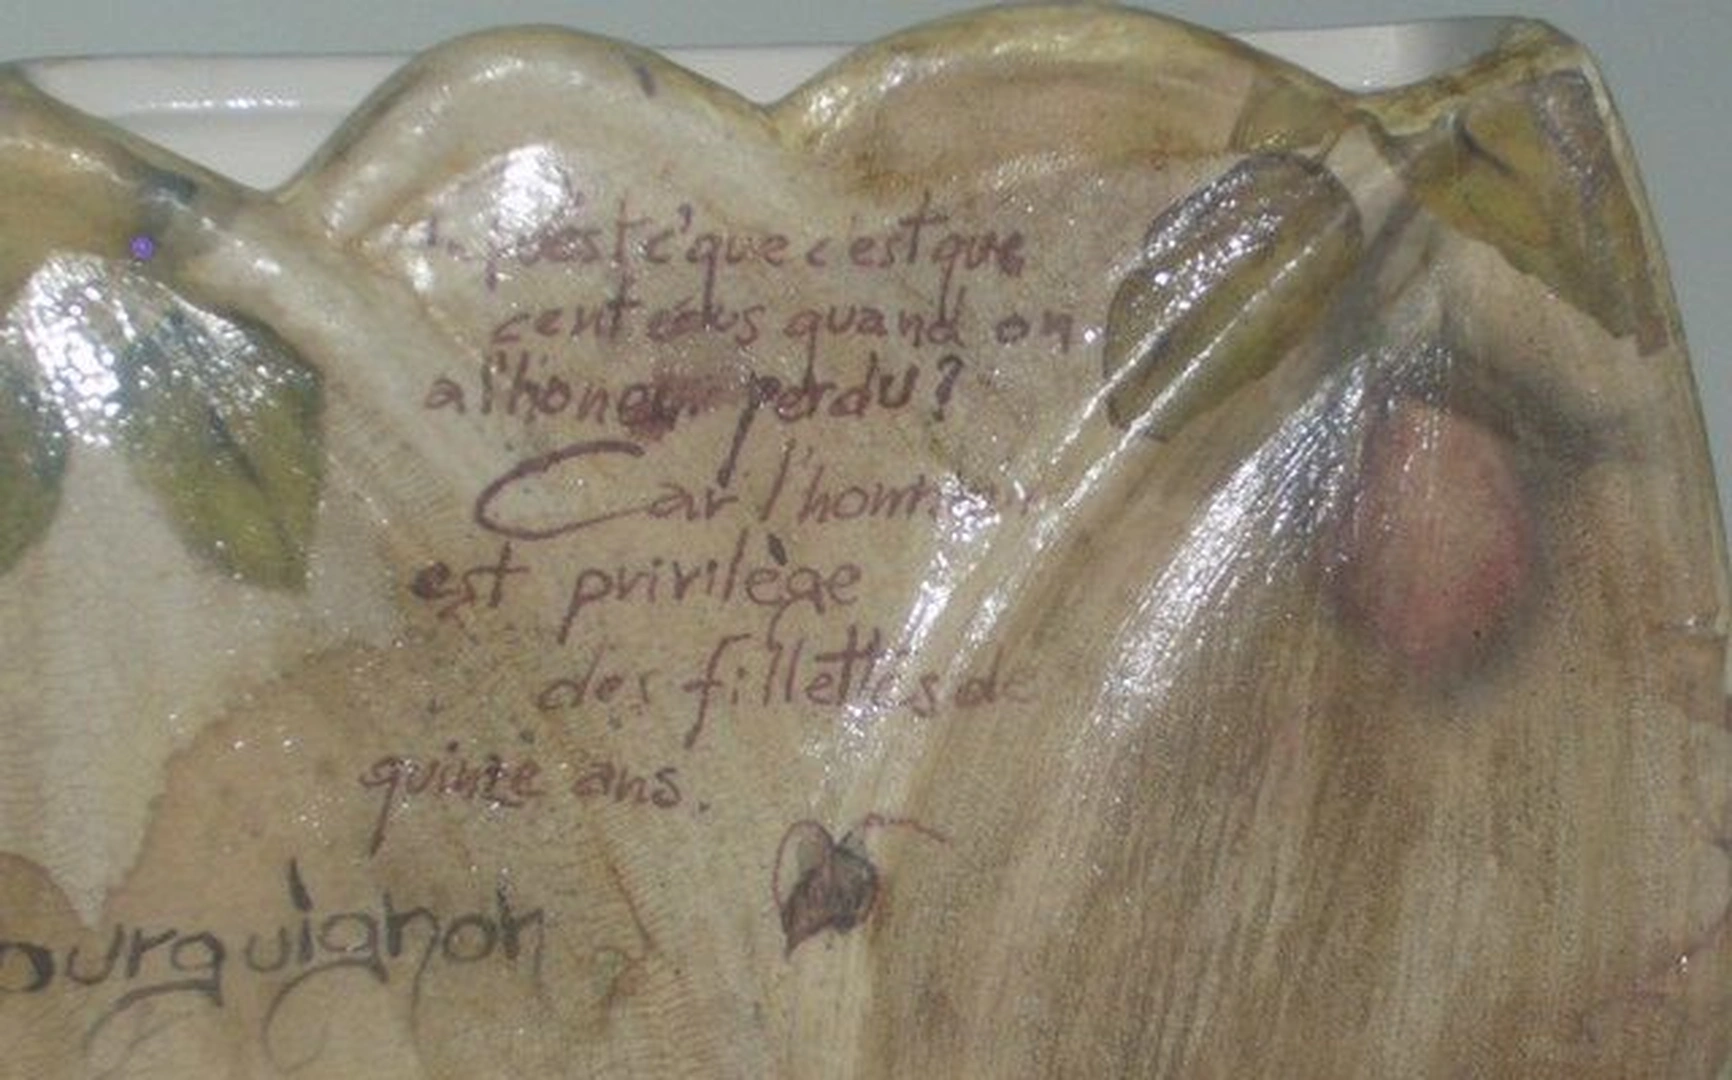 qu'est c'que c'est que
cent écus quand on
a l'honeur perdu?
Car l'honneur
est privilège
des fillettes de
quinze ans.
ourguignon